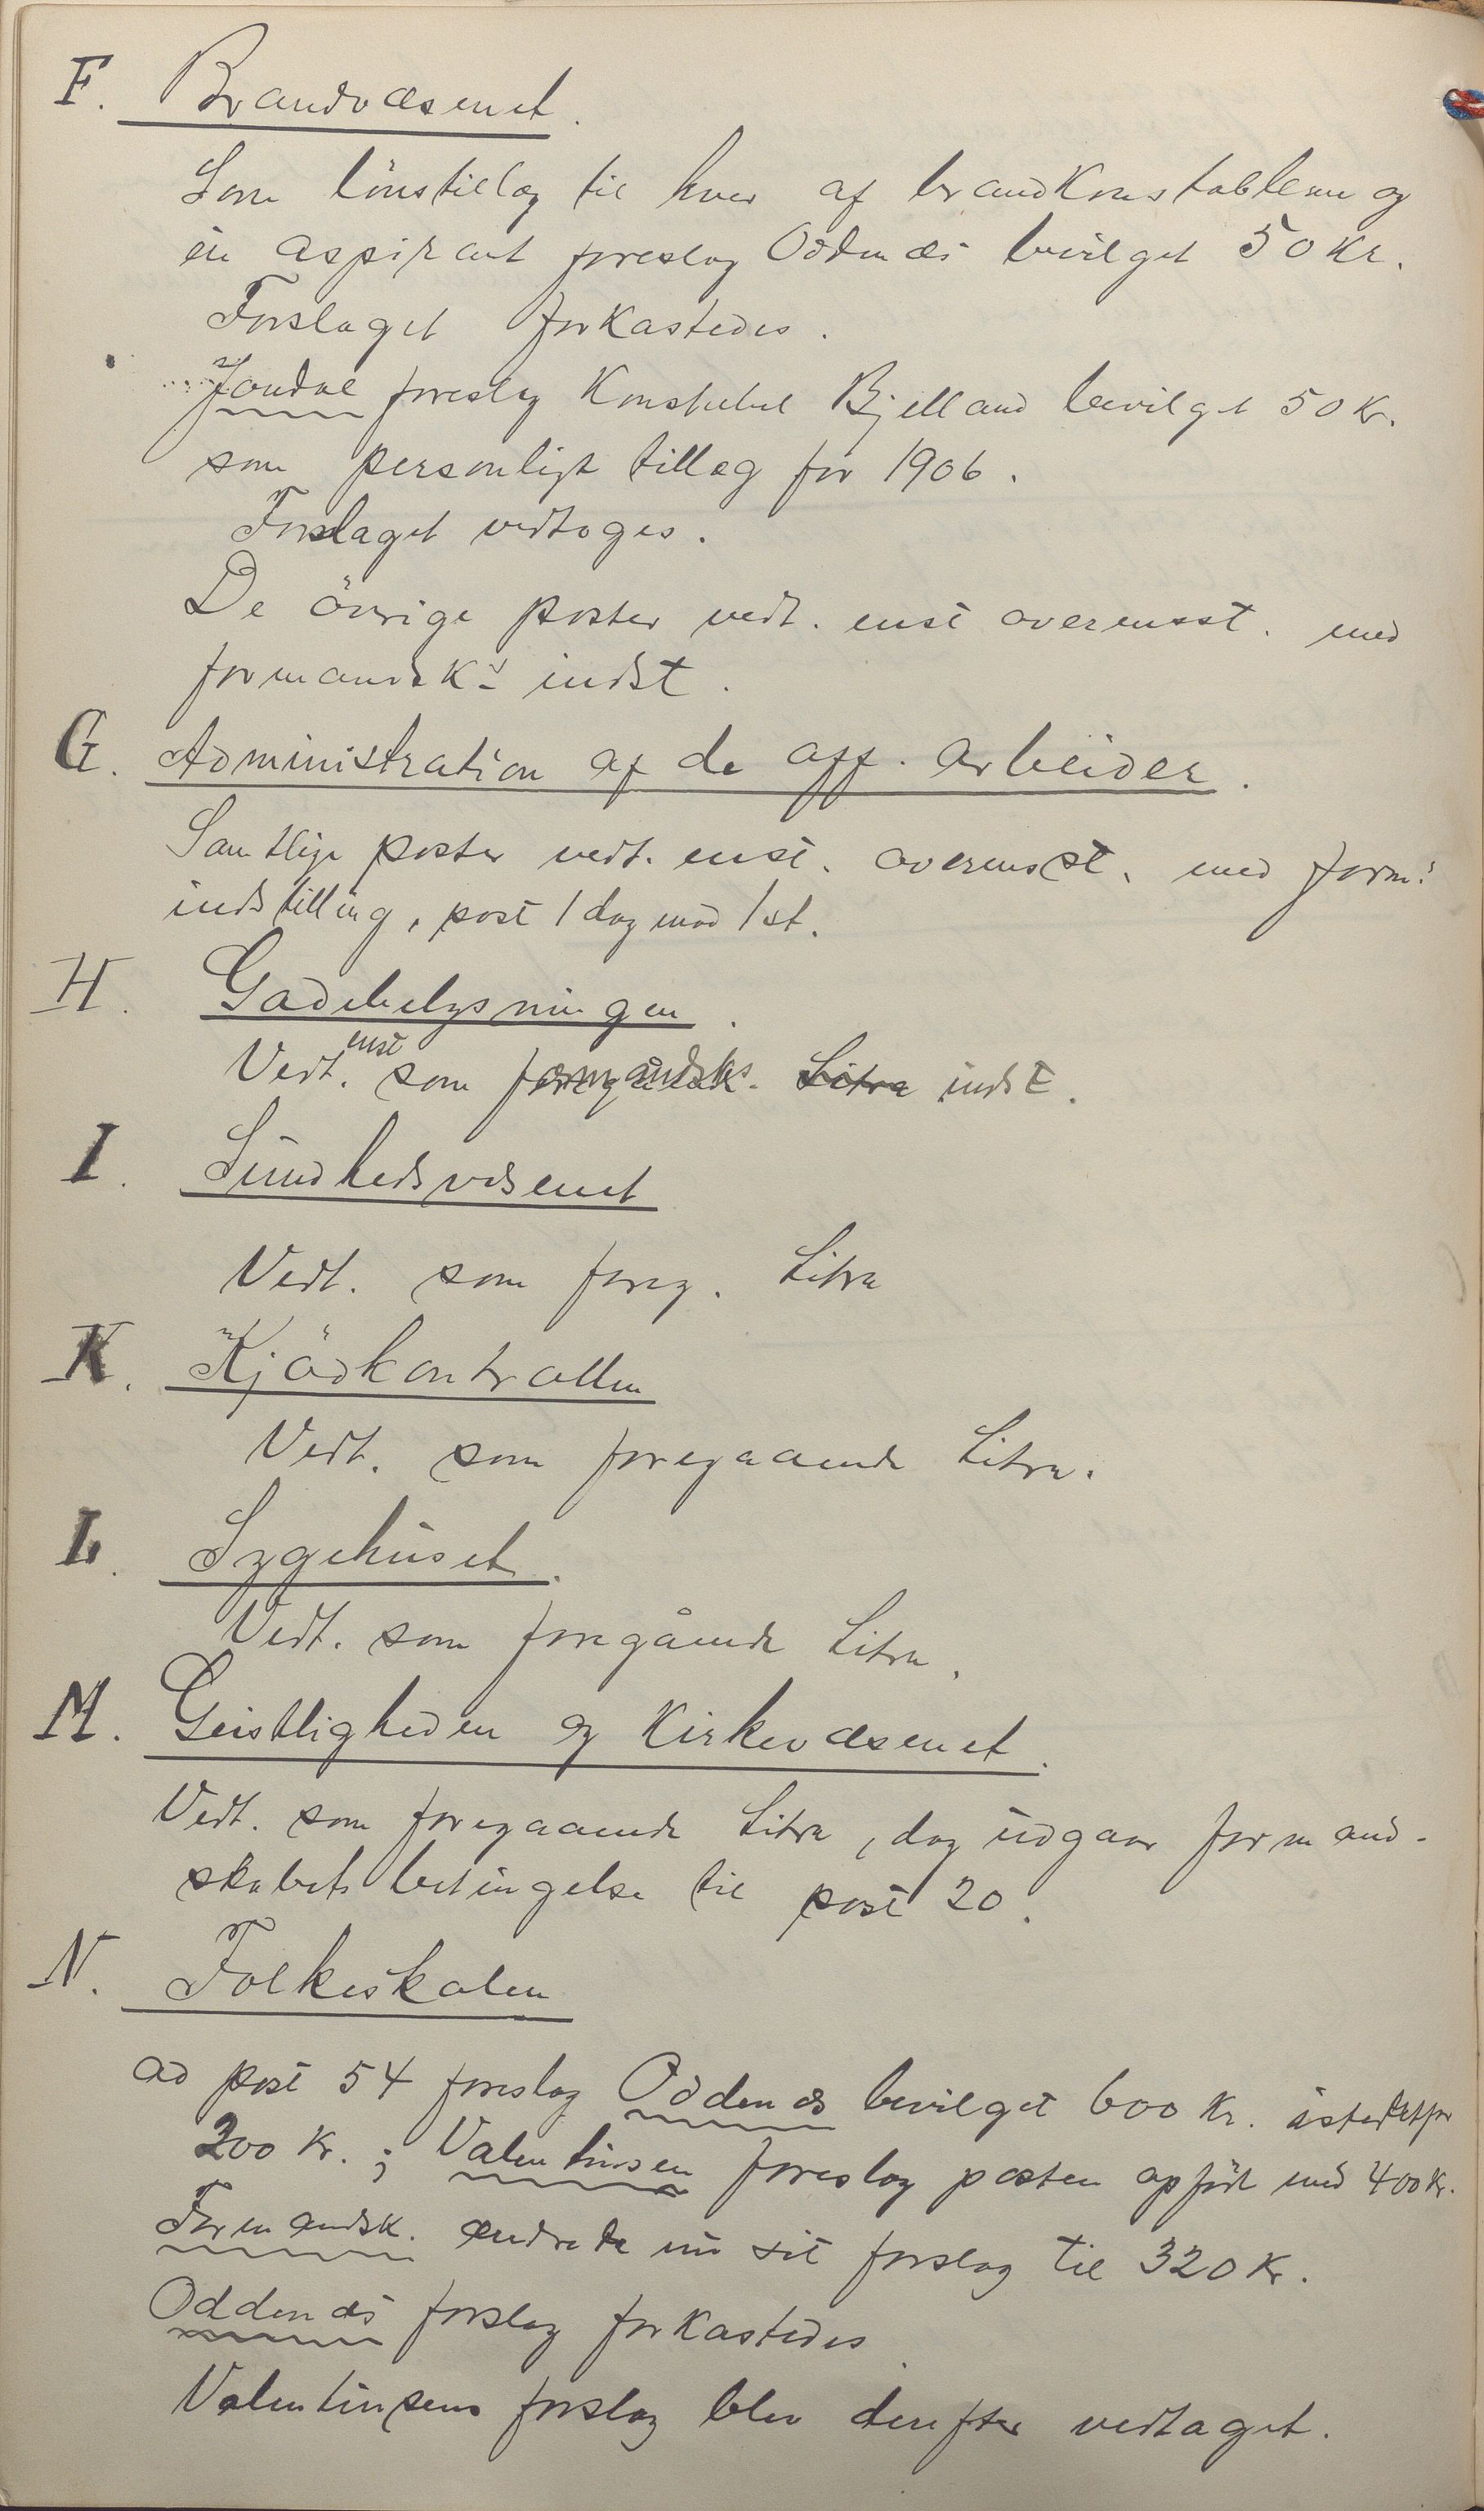 F. Brandvæsenet.
Som lönstillæg til hver af brandkonstablerne og
en aspirant foreslog Oddenæs bevilget 50 Kr.
Forslaget forkastedes.
Jondal foreslog Konstabel Bjelland bevilget 50 Kr.
som personligt tillæg for 1906.
Forslaget vedtoges.
De övrige poster vedt. enst overensst. med
formandsk's indst.
G. Administration af de off. arbeider.
Samtlige poster vedt. enst. overensst. med form:s
indstilling, post 1 dog mod 1 st.
H. Gadebelysningen.
Vedt. enst som formandsks. Litra indst.
I. Sundhedsvæsenet
Vedt. som foreg. Litra
K. Kjödkontrollen
Vedt. som foregaaende Litra.
L. Sygehuset.
Vedt. som foregående Litra.
M. Geistligheden og Kirkevæsenet.
Vedt. som foregaaende Litra, dog udgaar formand-
skabets betingelse til post 20.
N. Folkeskolen
ad post 54 foreslog Oddenæs bevilget 600 Kr. istedetfor
200 Kr.; Valentinsen foreslog posten opfört med 400 Kr.
Formandsk. ændrede nu sit forslag til 320 Kr.
Oddenæs forslag forkastedes.
Valentinsens forslag blev derefter vedtaget.